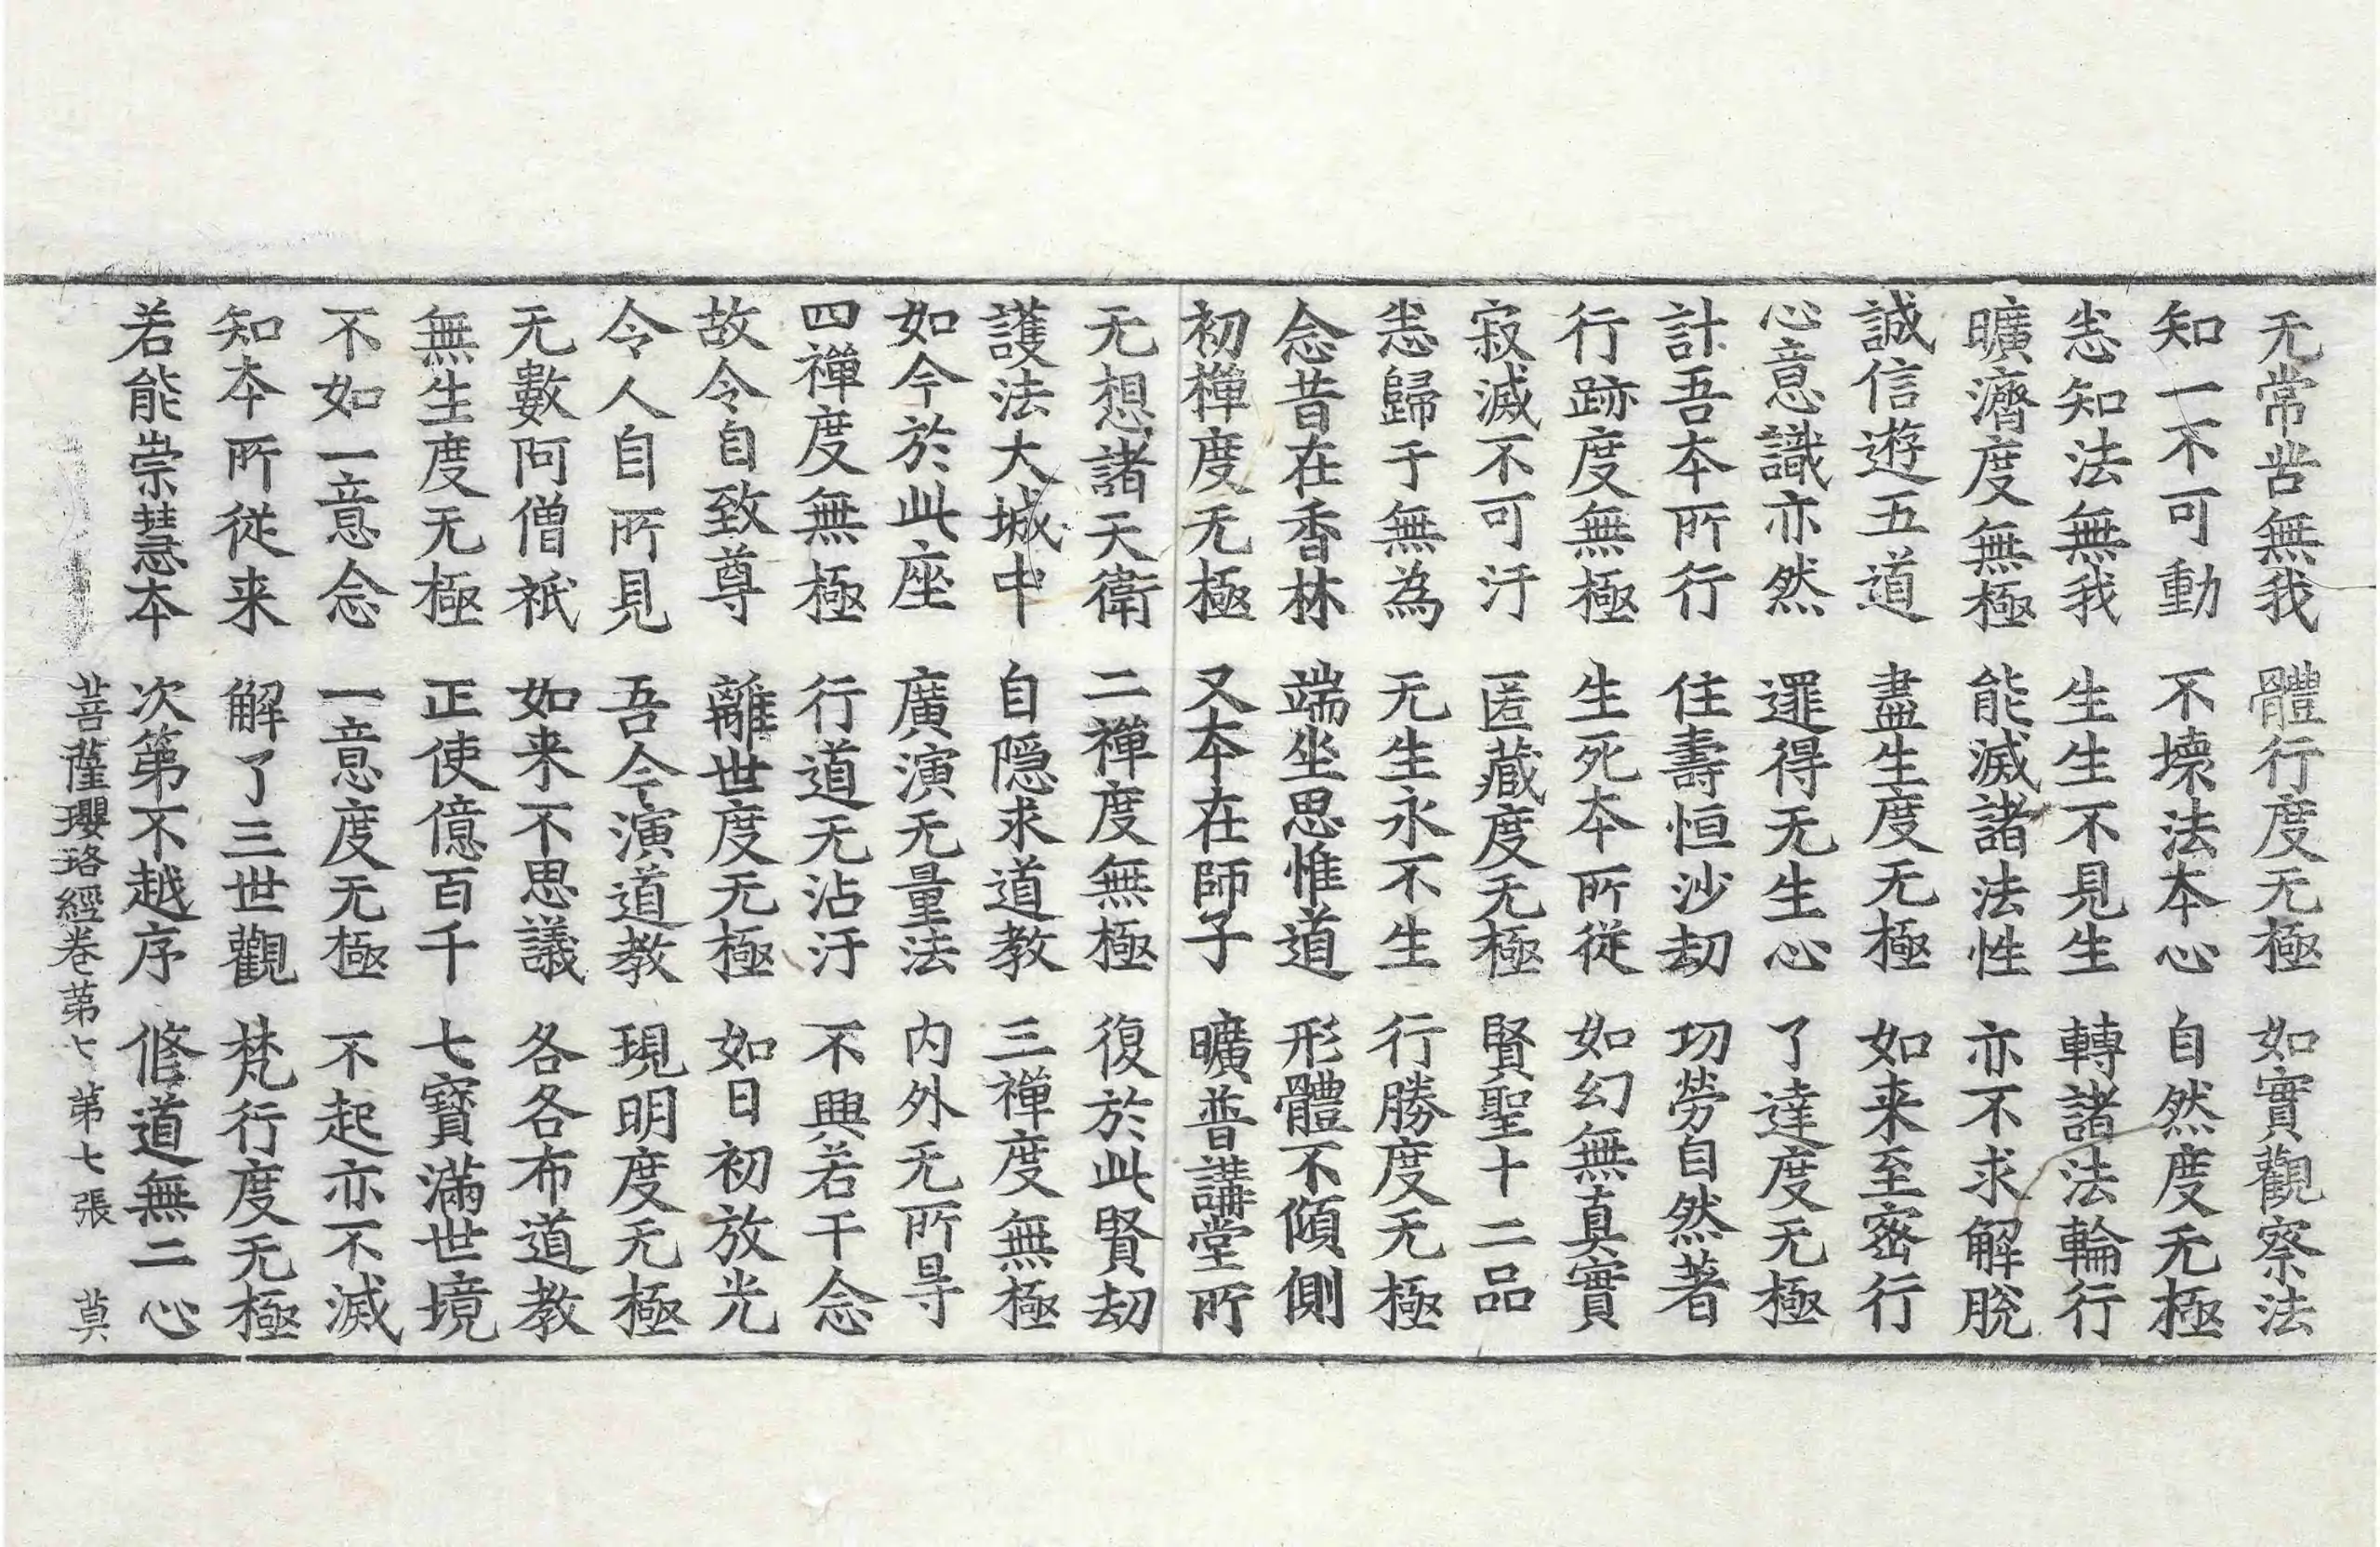 无常苦無我　體行度无極　如實觀察法
知一不可動　不壞法本心　自然度无極
悉知法無我　生生不見生　轉諸法輪行
曠濟度無極　能滅諸法性　亦不求解脫
誠信遊五道　盡生度无極　如来至密行
心意識亦然　還得无生心　了達度无極
計吾本所行　住壽恒沙劫　功勞自然著
行跡度無極　生死本所從　如幻無真實
寂滅不可汙　匿藏度无極　賢聖十二品
悉歸于無為　无生永不生　行勝度无極
念昔在香林　端坐思惟道　形體不傾側
初禪度无極　又本在師子　曠普講堂所
无想諸天衛　二禪度無極　復於此賢劫
護法大城中　自隱求道教　三禪度無極
如今於此座　廣演无量法　内外无所㝵
四禪度無極　行道无沾汙　不興若干念
故令自致尊　離世度无極　如日初放光
令人自所見　吾今演道教　現明度无極
无數阿僧祇　如来不思議　各各布道教
無生度无極　正使億百千　七寶滿世境
不如一意念　一意度无極　不起亦不滅
知本所從来　解了三世觀　梵行度无極
若能崇慧本　次第不越序　修道無二心
菩薩瓔珞經卷第七　第七張　莫